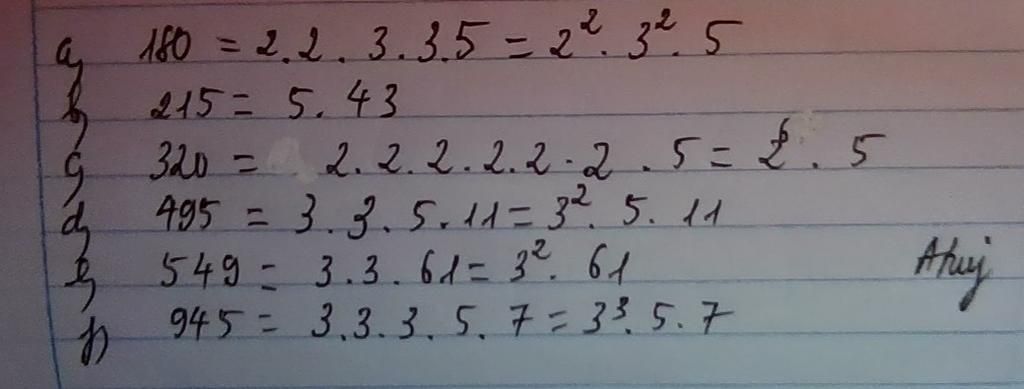 a) 180 = 2.2.3.3.5 = 2². 3². 5
b) 215 = 5. 43
c) 320 = 2.2.2.2.2.2.5 = 2⁶. 5
d) 495 = 3.3.5.11 = 3². 5. 11
e) 549 = 3.3.61 = 3². 61
f) 945 = 3.3.3.5.7 = 3³. 5. 7